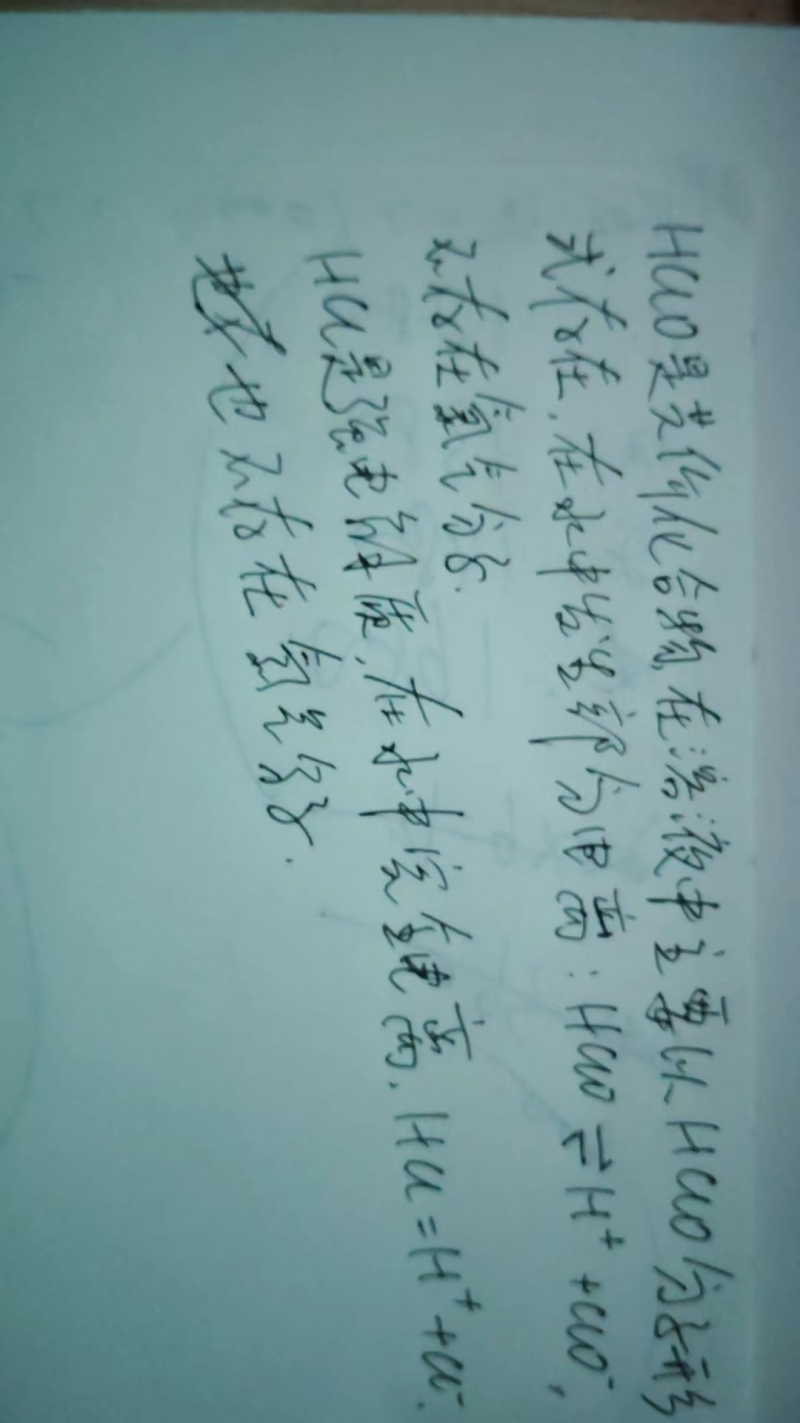 HClO是共价化合物在溶液中主要以HClO分子形
式存在,在水中发生部分电离:HClO⇌H⁺+ClO⁻,
不存在氯气分子.
HCl是强电解质,在水中完全电离.HCl=H⁺+Cl⁻.
也不存在氯气分子.